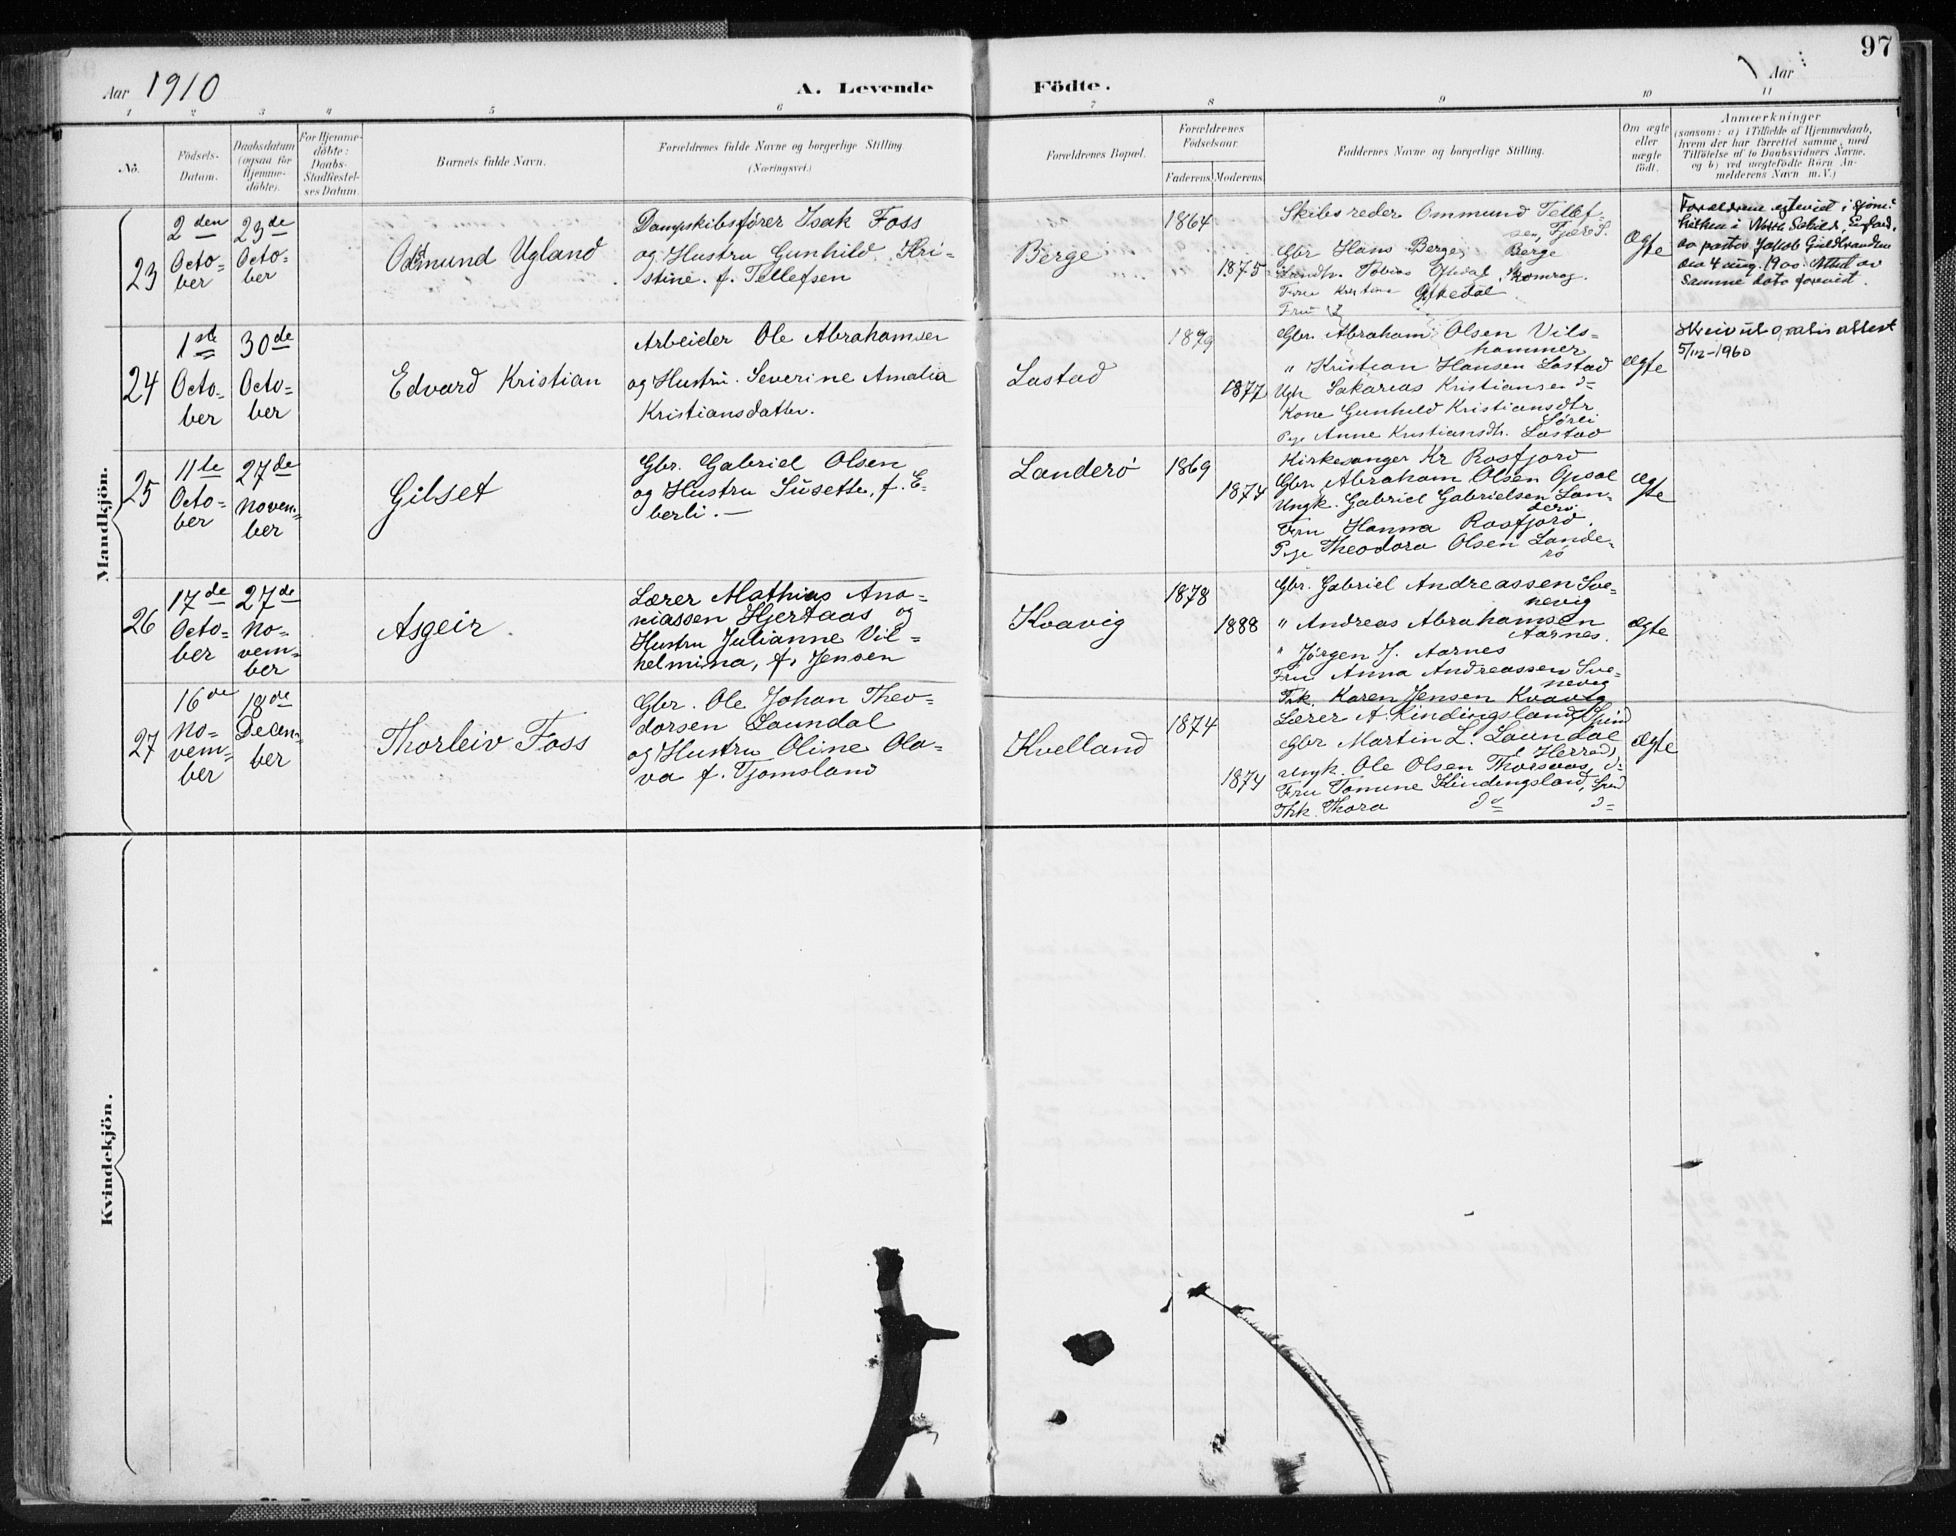 97
Aar 1910
A. Levende Födte.
Aar
1 2 3 4 5 6 7 8 9 10 11
No.
Födsels-
Datum.
Daabsdatum
(ogsaa for
Hjemme-
döbte).
For Hjemme-
döbte:
Daabs-
Stadfæstel-
ses Datum.
Barnets fulde Navn.
Forældrenes fulde Navne og borgerlige Stilling
(Næringsvei.)
Forældrenes Bopæl.
Forældrenes
Födselsaar.
Faderens. Moderens.
Faddernes Navne og borgerlige Stilling.
Om ægte
eller
uægte
födt.
Anmærkninger
(saasom: a) i Tilfælde af Hjemmedaab,
hvem der har forrettet samme, med
Tilföielse af to Daabsvidners Navne,
og b) ved uægtefödte Börn An-
melderens Navn m. V.)
Mandkjön.
23
2den
Octo-
ber
23de
Octo-
ber
Odmund Ugland
Dampskibsfører Isak Foss
og Hustru Gunhild Kri-
stine. f. Tellefsen
Berge
1864
1875
Skibsreder Ommund Tellef-
sen, Fjære S.
Gbr Hans Berge, Berge
Tobias
Fru Kristine
Fru
Ægte
Forældrene egteviet i Sjøm.
kirken i North Schilds, England,
av pastor Jakob Guldbrandsen
den 4 aug. 1900. Attest av
samme dato forevist.
24
1ste
Octo-
ber
30de
Octo-
ber
Edvard Kristian
Arbeider Ole Abrahamsen
og Hustru. Severine Amalia
Kristiansdatter.
Lastad
1879
1877
Gbr. Abraham Olsen Vils-
hammer
" Kristian Hansen Lastad
Ugk Sakarias Kristiansen d=
Kone Gunhild Kristiansdtr
Sørli
Pige Anne Kristiansdtr. Lastad
Ægte
Skrevet gratis attest
5/12-1960
25
11te
Octo-
ber
27de
Novem-
ber
Gilset
Gbr. Gabriel Olsen
og Hustru Susette, f. E-
berli. —
Landerö
1869
1874
Kirkesanger Kr Rosfjord
Gbr. Abraham Olsen Opsal
Ungk. Gabriel Gabrielsen Lan-
derö.
Fru Hanna Rosfjord.
Pige Theodora Olsen Lande-
rö
Ægte
26
17de
Octo-
ber
27de
No-
vem-
ber
Asgeir.
Lærer Mathias Ana-
niassen Hjertaas og
Hustru Julianne Vil-
helmina, f. Jensen
Kvavig
1878
1888
Gbr. Gabriel Andreassen Sve-
nevig
" Andreas Abrahamsen
Aarnes.
" Jørgen J. Aarnes
Fru Anna Andreassen Sve-
nevig
Thk. Karen Jensen Kvavig
Ægte
27
16de
No-
vem-
ber
18de
Decem-
ber
Thorleiv Foss
Gbr. Ole Johan Theo-
dorsen Laundal
og Hustru Oline Ola-
va f. Tjomsland
Kvelland
1874
1874
Lærer A. Kindingsland, Spind
Gbr Martin L. Laundal
i Herred,
Ungk. Ole Olsen d=
Fru Tomine Kindingsland, Spind
Thk. Thora d= d=
Ægte
Kvindekjön.